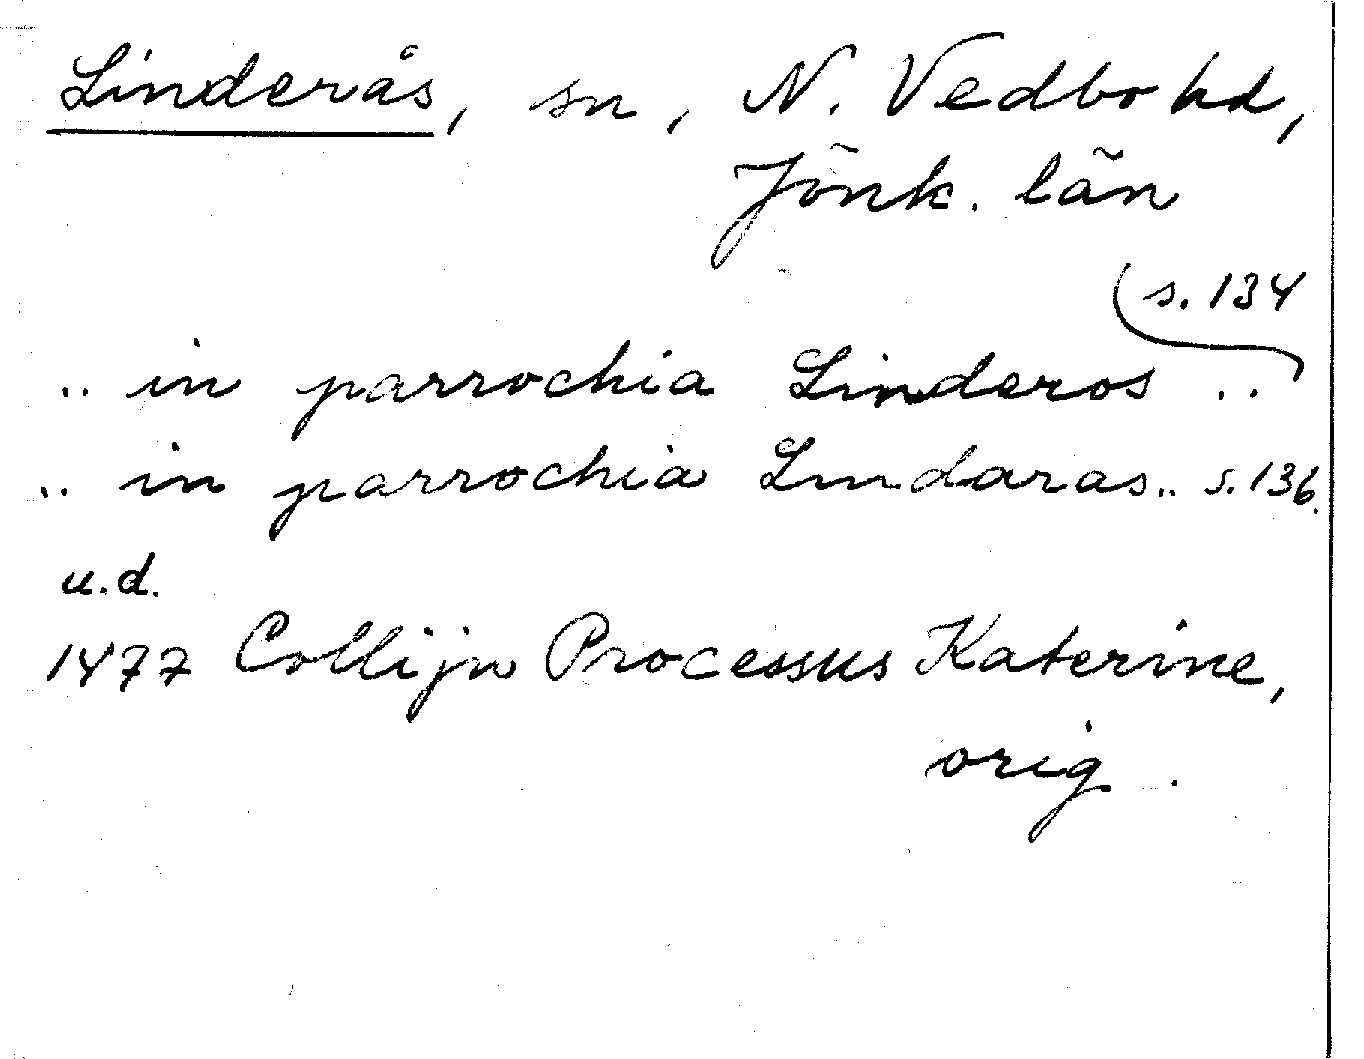 Linderås, sn, N. Vedbo hd,
Jönk. län
s. 134
.. in parrochia Linderos ..
.. in parrochia Lindaras .. s. 136.
u.d.
1477 Collijn Processus Katerine,
orig.